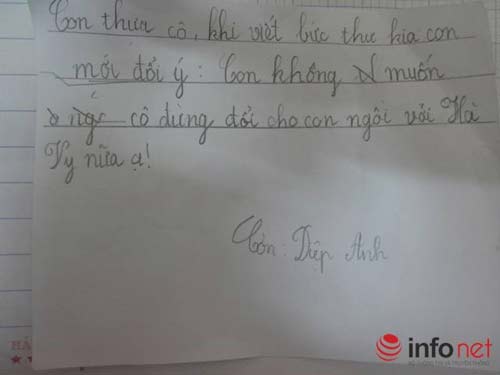 Con thưa cô, khi viết bức thư kia con
mới đổi ý: Con không muốn
cô dừng đổi cho con ngồi với Hà
Vy nữa ạ!
Con: Diệp Anh
infonet